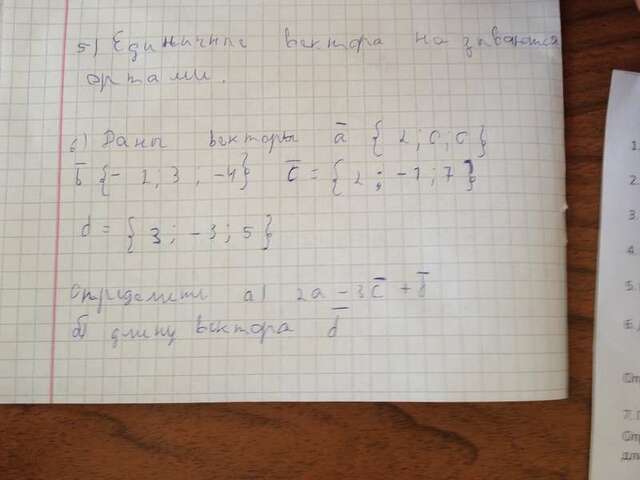 5) Единичные вектора называются
ортами.
6) Даны векторы a̅ {2; 0; 0}
b̅ {- 2; 3; -4} c̅ = {2; -1; 7}
d = {3; -3; 5}
Определить а) 2a - 3c̅ + b̅
б) длину вектора d̅
1.
2.
3.
4.
5.
6.
7.